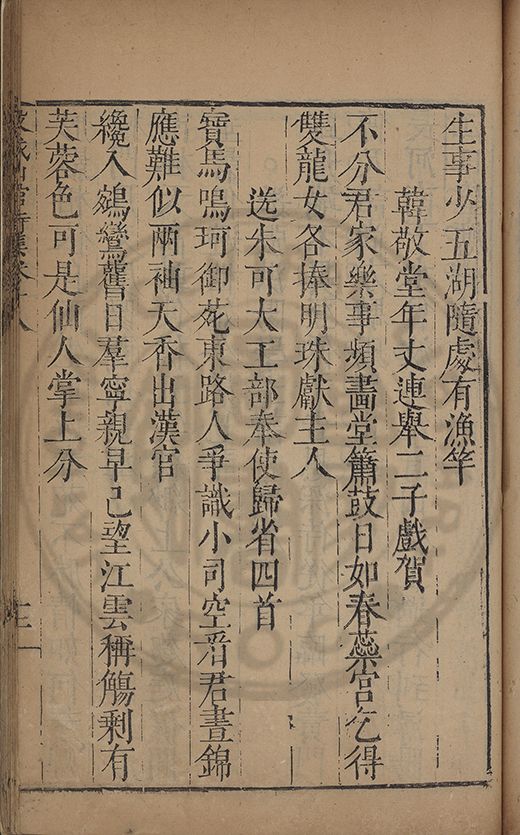 生事少五湖隨處有漁竿
韓敬堂年丈連舉二子戲賀
不分君家樂事頻畵堂簫鼓日如春蘂宮乞得
雙龍女各捧明珠獻主人
送朱可大工部奉使歸省四首
寳馬鳴珂御苑東路人爭識小司空看君晝錦
應難似兩袖天香出漢宮
纔入鵷鸞舊日羣寧親早已望江雲稱觴剩有
芙蓉色可是仙人掌上分